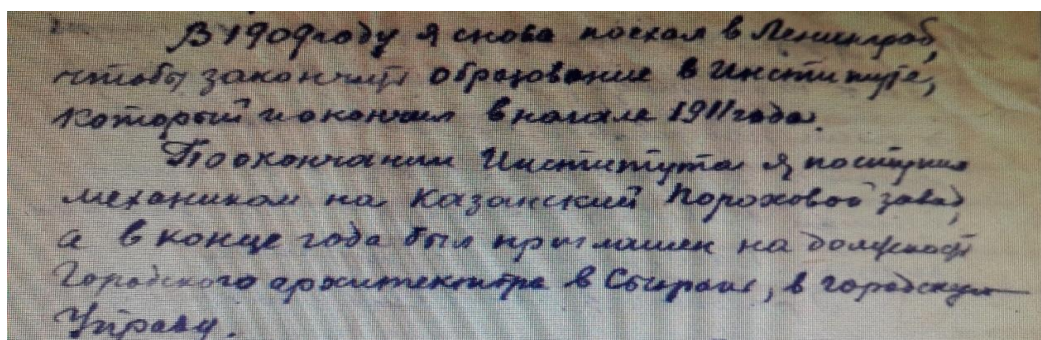 В 1909 году я снова поехал в Ленинград,
чтобы закончить образование в Институте,
который и окончил в начале 1911 года.
По окончании Института я поступил
механиком на Казанский Пороховой завод,
а в конце года был приглашен на должность
Городского архитектора в Сызрань, в городскую
Управу.